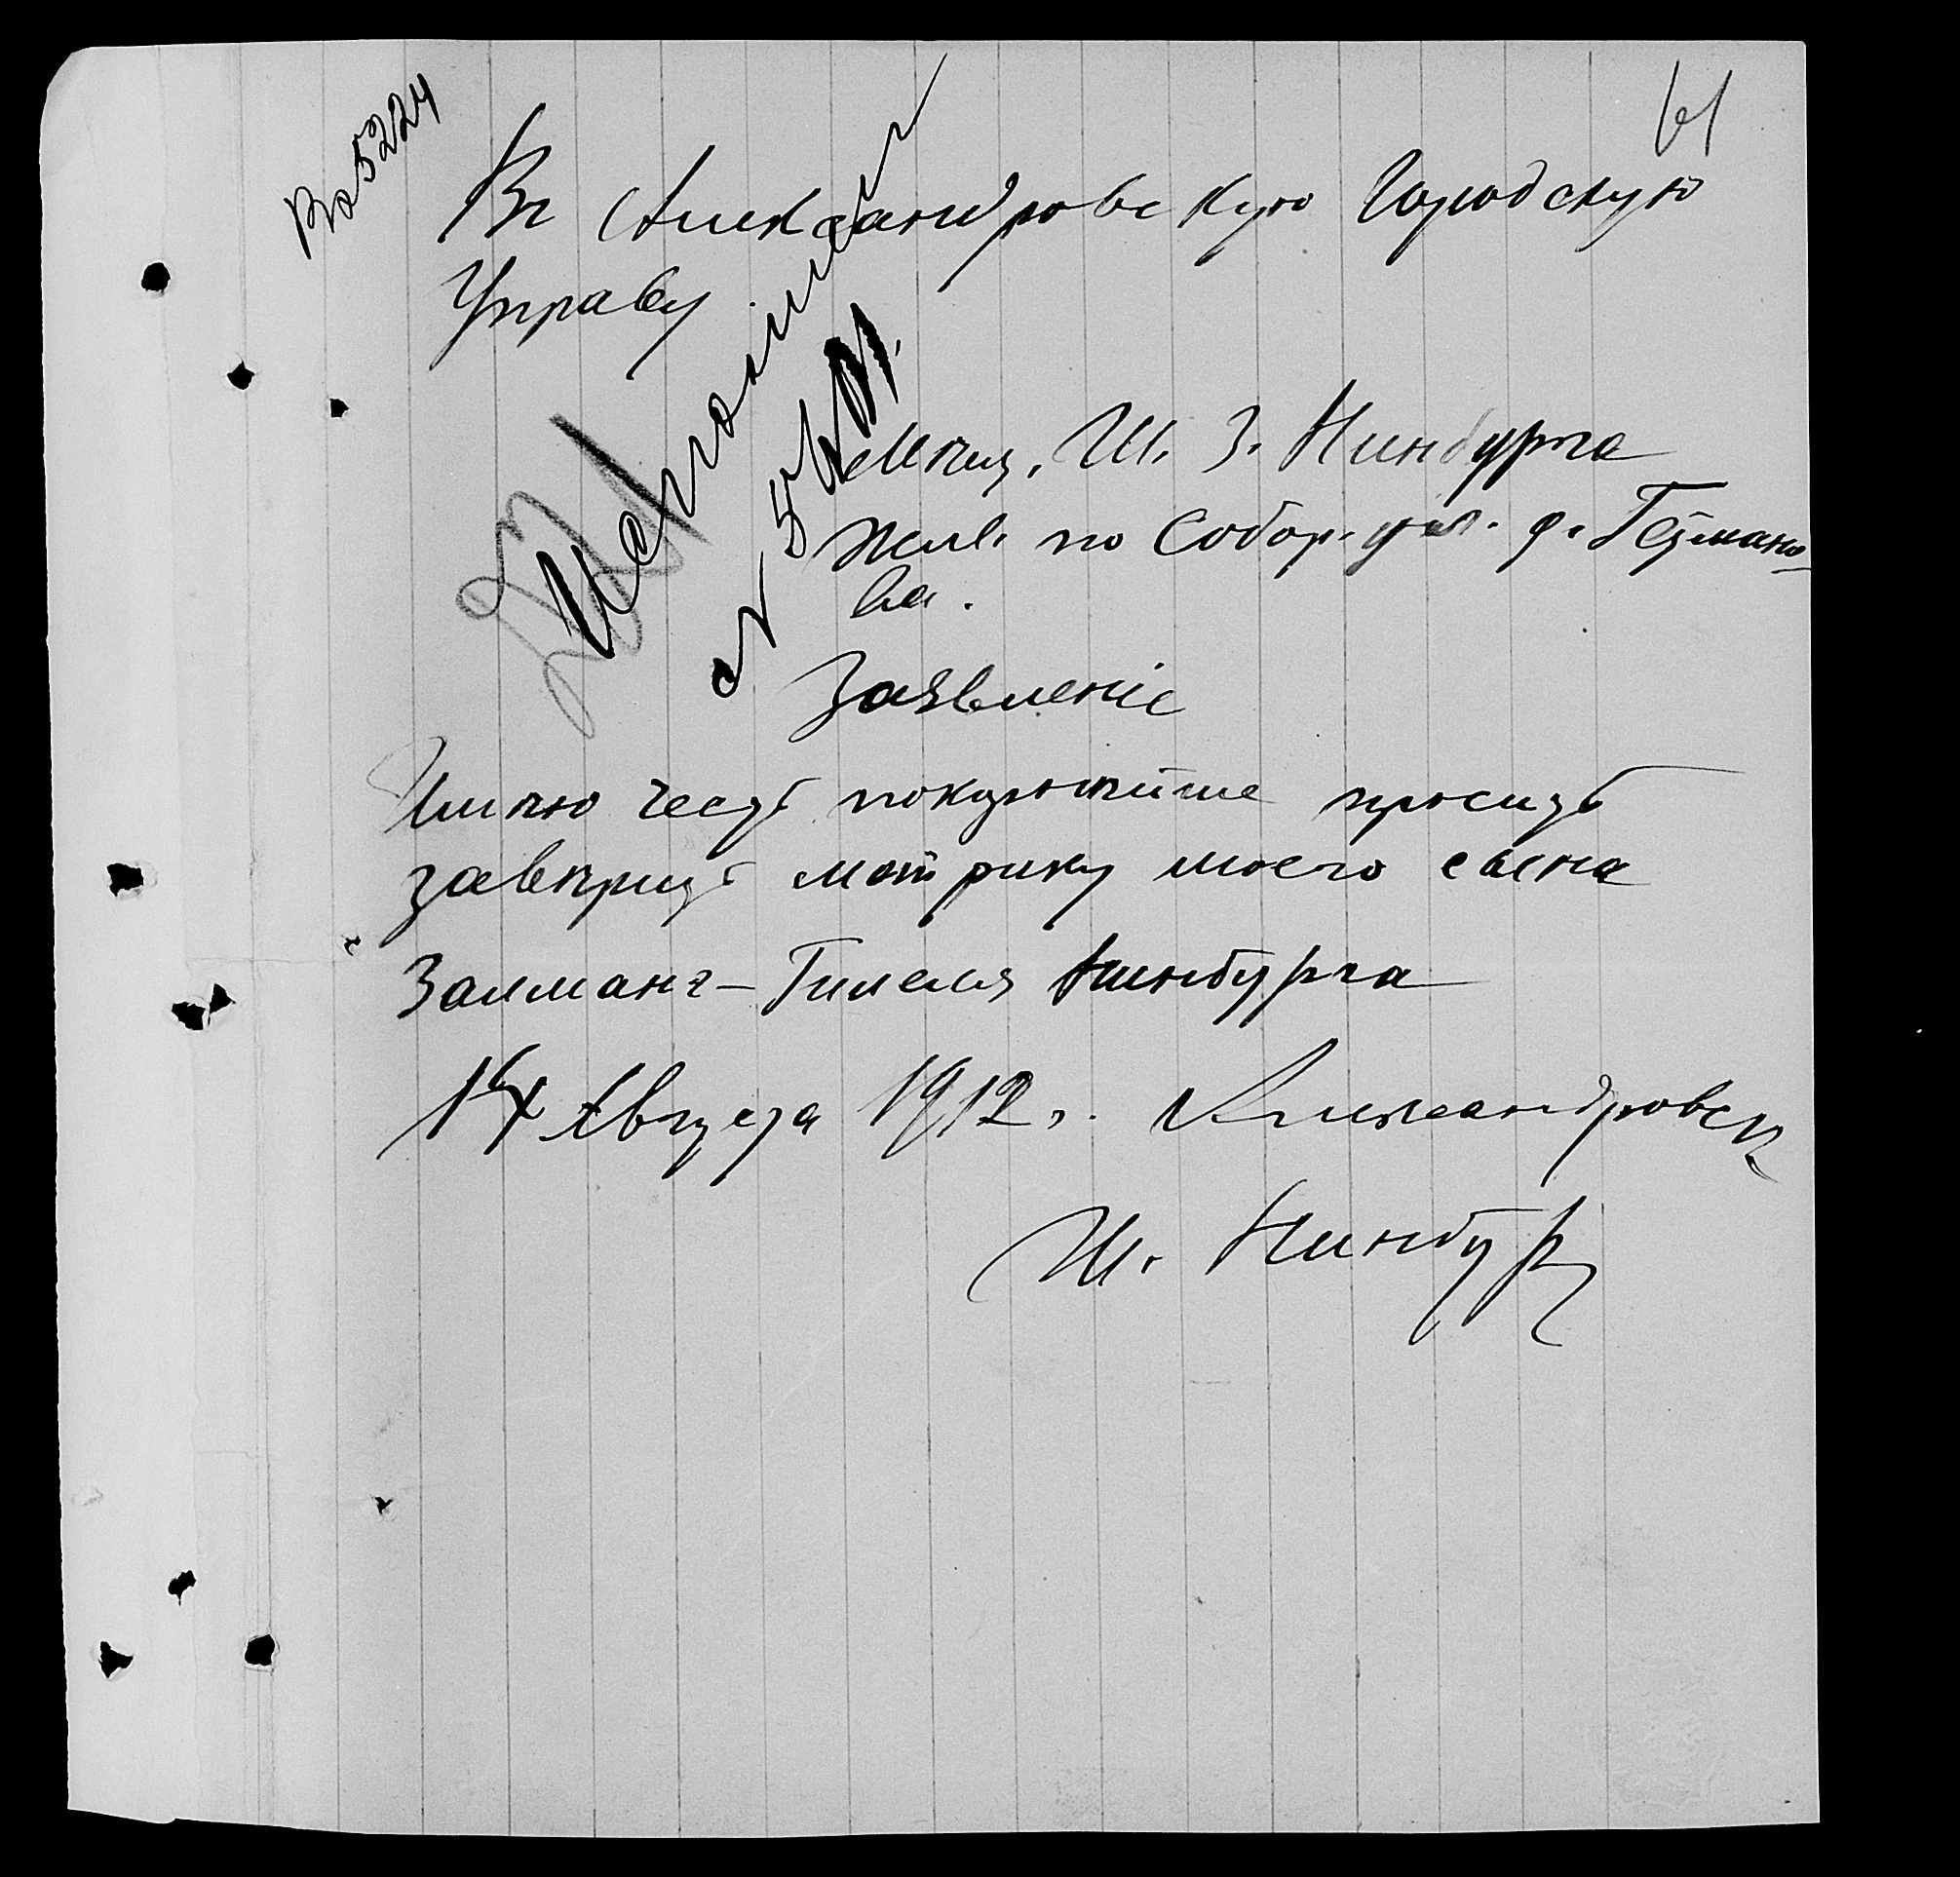 Вх 5224
61
Въ Александровскую Городскую
Управу
Исполнить
№ 5161
Мѣщ. Ш. З. Нинбурга
Жив. по Собор. ул. д. Гетмано-
ва.
Заявленіе
Имѣю честь покорнѣйше просить
завѣрить метрику моего сына
Залманъ-Гилеля Нинбурга
14 Августа 1912 г. Александровскъ
Ш. Нинбург